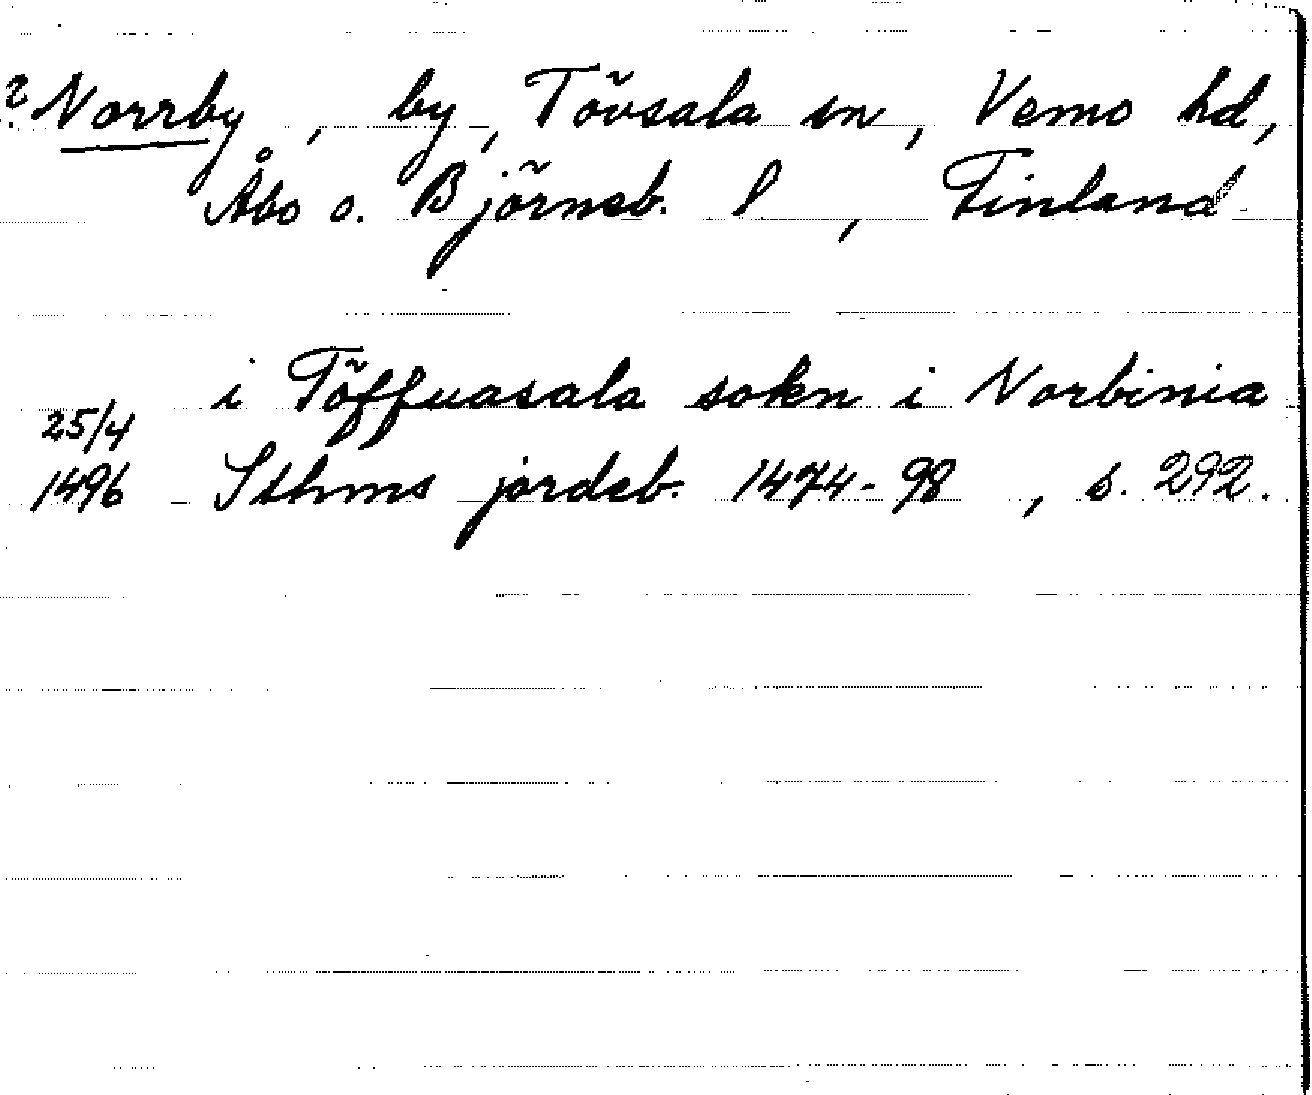 ? Norrby, by, Tövsala sn, Vemo hd,
Åbo o. Björneb. l, Finland
i Töffuasala sokn i Norbinia
25/4
1496 Sthms jordeb. 1474-98, s. 292.